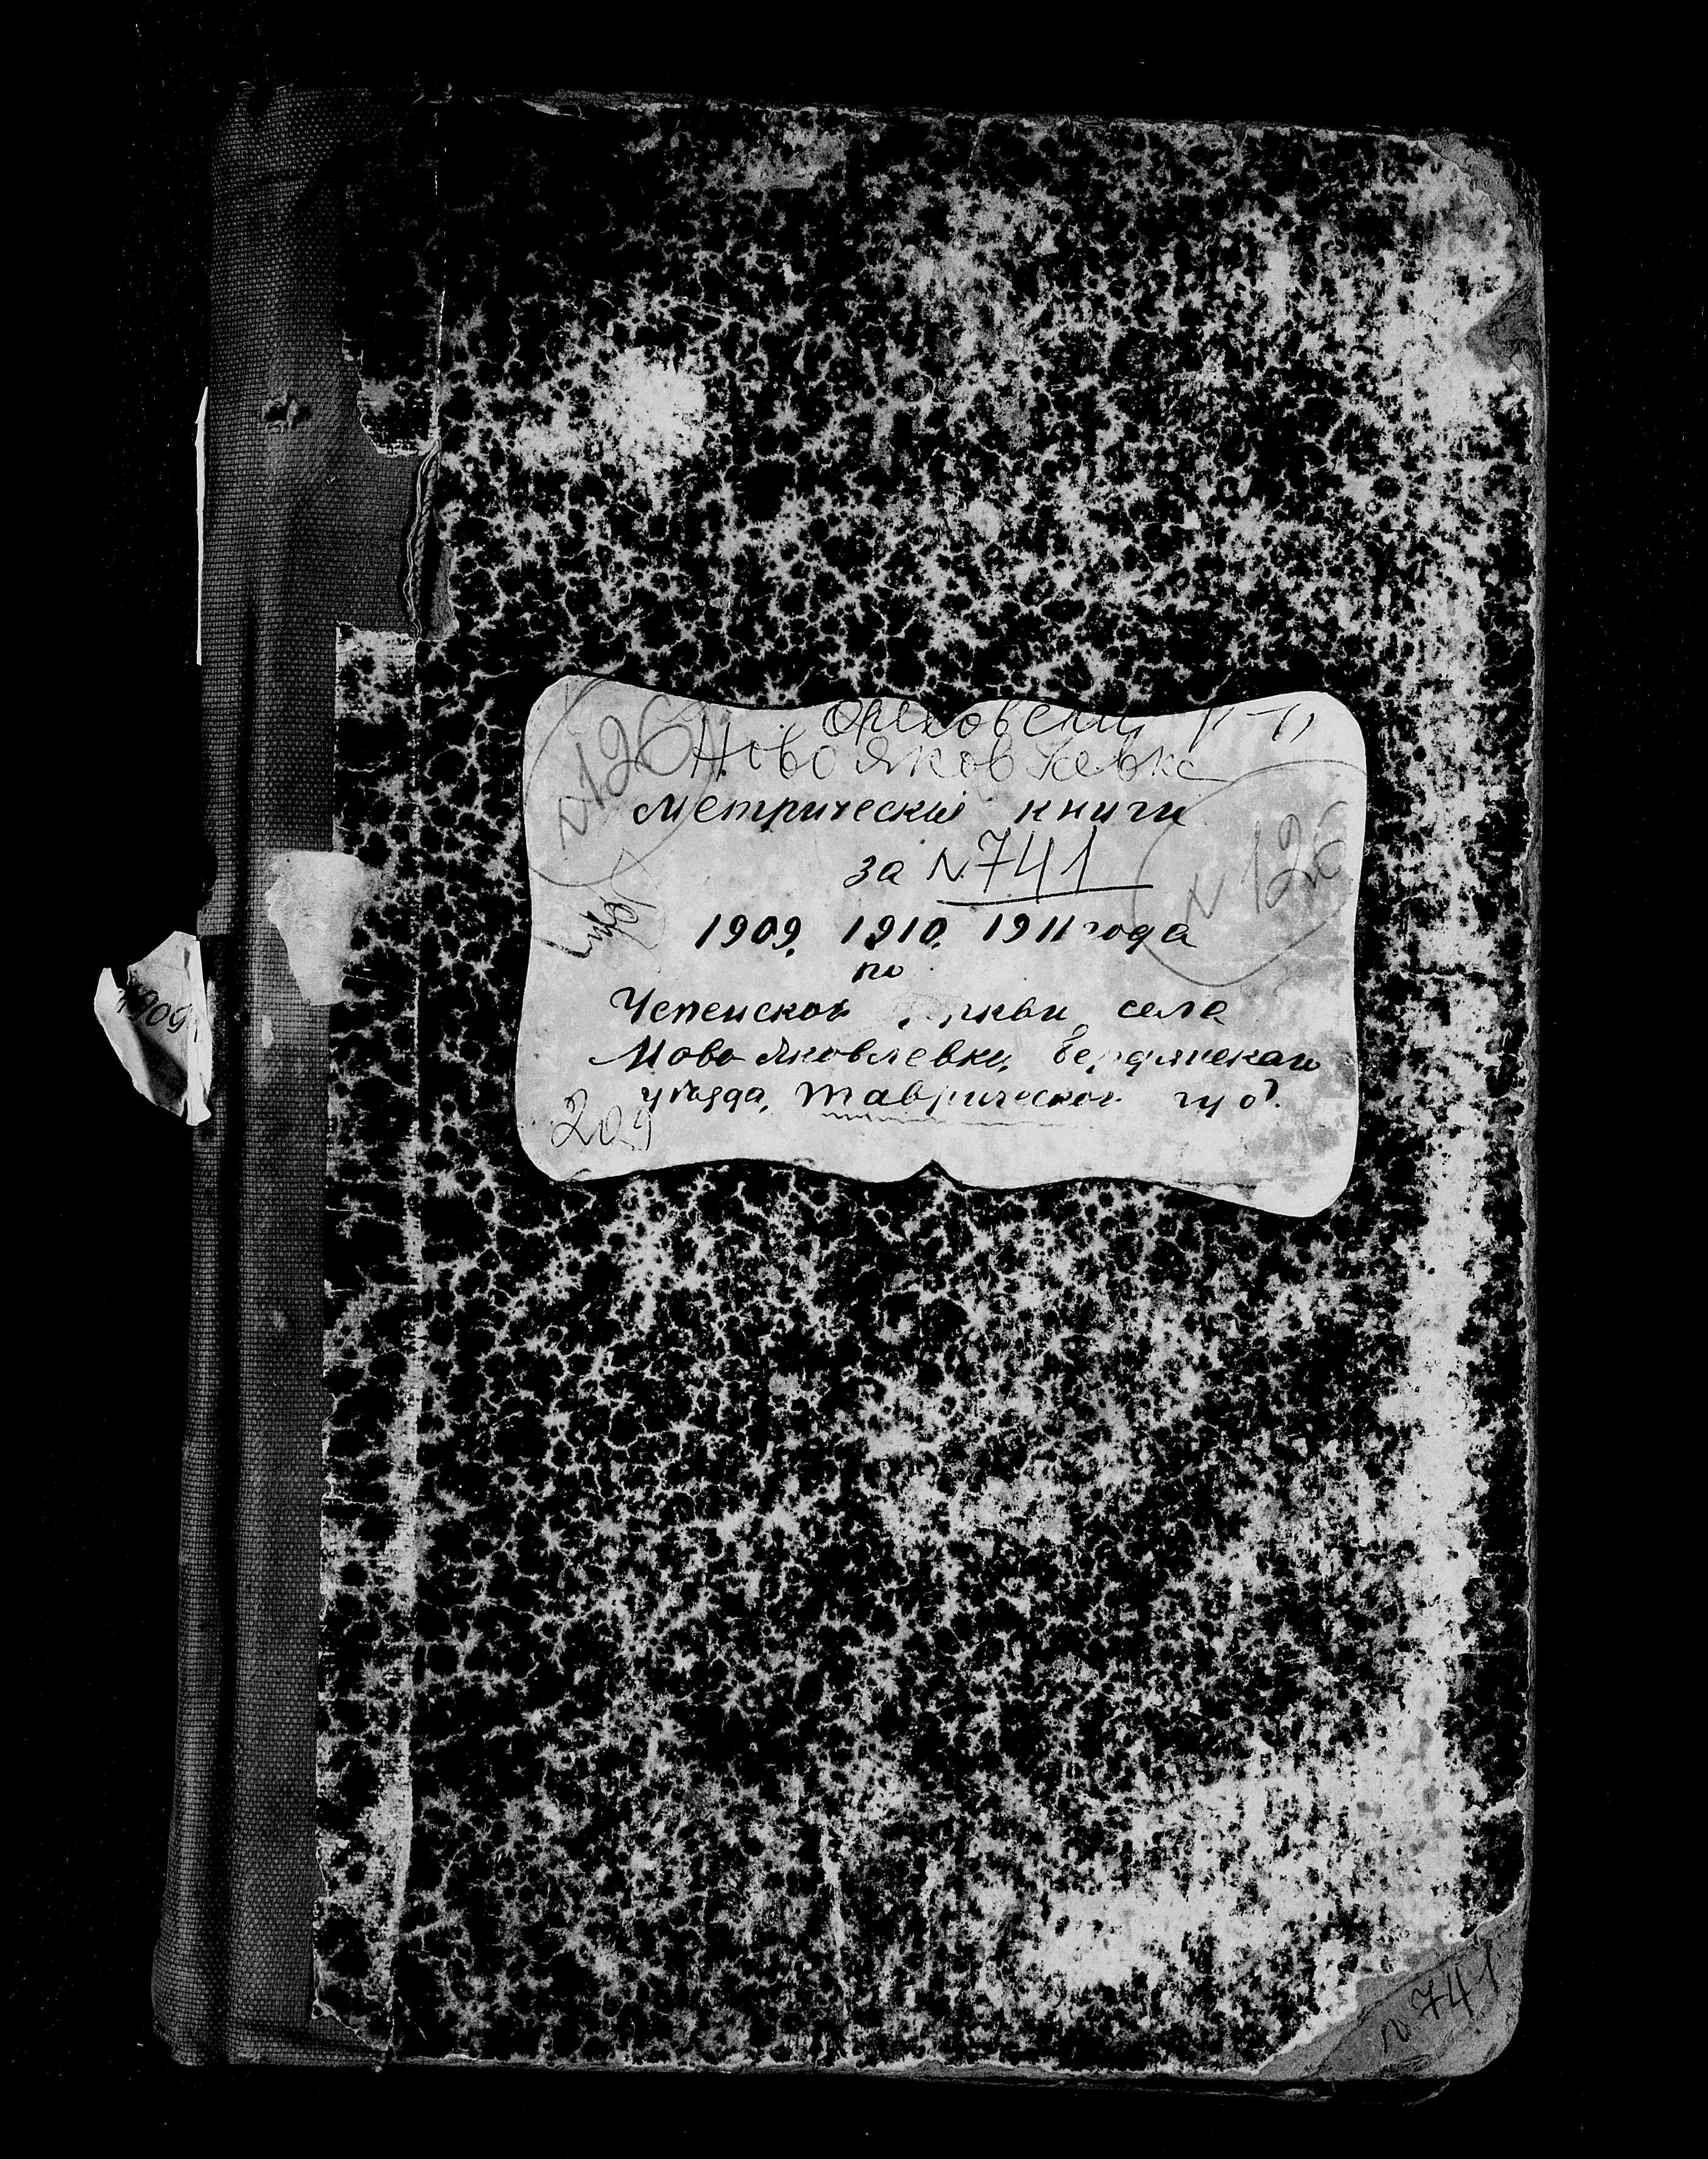 Ореховский р-н
Ново Яковлевка
N 126
Метрической книги
за N 741
N 126
1909. 1910. 1911 года
по
Успенской церкви села
Ново-Яковлевки, Бердянскаго
уѣзда, Таврической губ.
209
1909
N 741